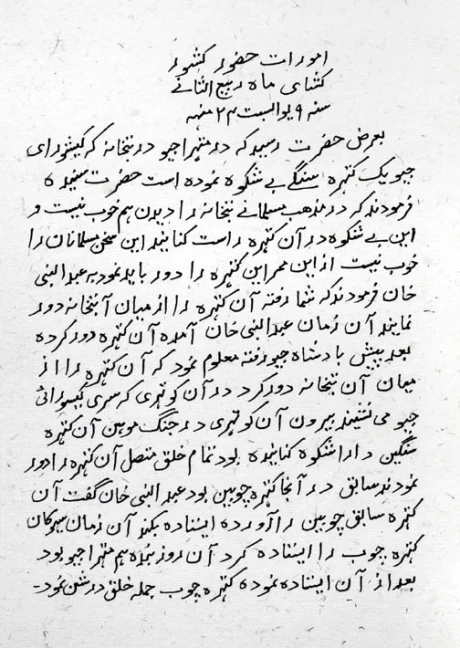 امورات حضور کشور
کشای ماه ربیع الثانے
سنه ۹ یوالبست ۲۴ منه
بعرض حضرت رسید که در متهراجیو در بتخانه که کیشورای
جیو یک کتهره سنگے بے شکوه نموده است حضرت سنیده
فرمودند که در مذهب مسلمانے بتخانه را دیدن هم خوب نیست و
این بے شکوه در آن کتهره راست کنانیده این سخن مسلمانان را
خوب نیست از این ممر این کتهره را دور باید نمود به عبدالنبی
خان فرمودند که شما رفته آن کتهره را از میان آن بتخانه دور
نمایند آن زمان عبدالنبی خان آمده آن کتهره دور کرده
بعد پیش بادشاه جیو رفته معلوم نمود که آن کتهره را از
میان آن بتخانه دور کرد در آن کوتهری که سری کیسورائی
جیو می نشینند بیرون آن کوتهری در جنگ موهن آن کتهره
سنگین داراشکوه کنانیده بود تمام خلق متصل آن کتهره را دور
نمودند سابق در آنجا کتهره چوبین بود عبدالنبی خان گفت آن
کتهره سابق چوبین را آورده ایستاده بکند آن زمان سیوکان
کتهره چوب را ایستاده کرد آن روز بنده هم متهراجیو بود
بعد از آن ایستاده نموده کتهره چوب جمله خلق درشن نمود۔